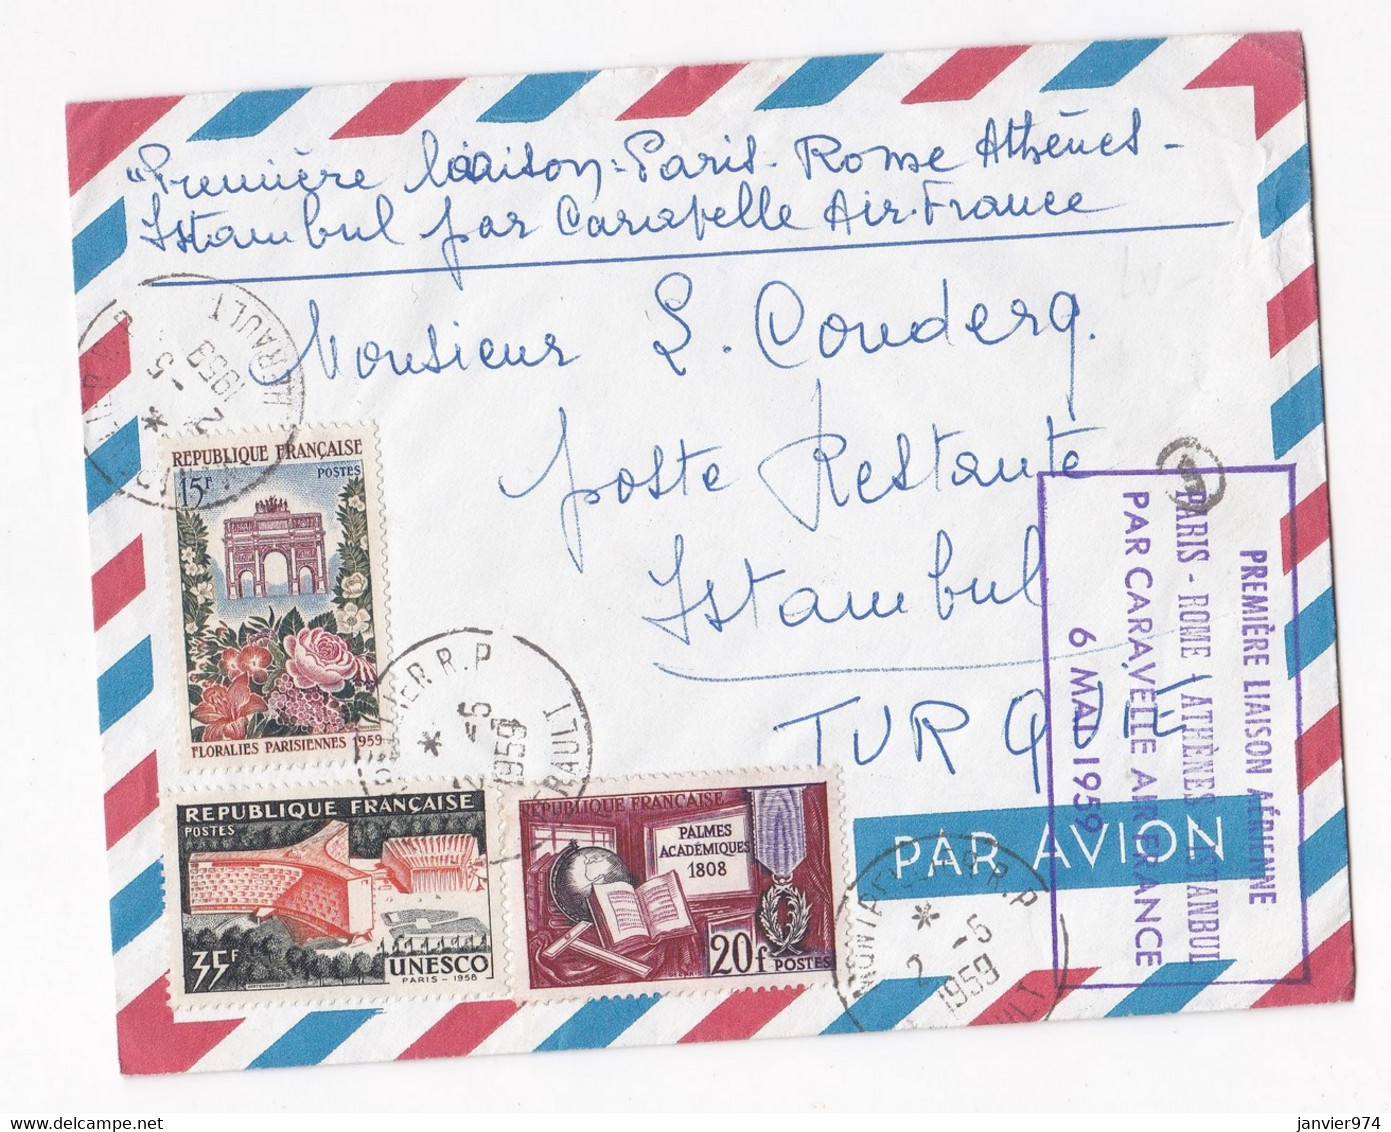 "Première liaison - Paris - Rome Athènes -
Istambul par Caravelle Air-France
Monsieur L. Couderq.
poste Restante
Istambul
TURQUIE
HERAULT
2 -5
1959
REPUBLIQUE FRANÇAISE
POSTES
15F
FLORALIES PARISIENNES 1959
R.P
2 -5
1959
HERAULT
REPUBLIQUE FRANÇAISE
POSTES
35F
UNESCO
PARIS - 1958
REPUBLIQUE FRANÇAISE
PALMES
ACADÉMIQUES
1808
20f
POSTES
PAR AVION
MONTPELLIER R.P
2 -5
1959
PREMIÈRE LIAISON AÉRIENNE
PARIS - ROME - ATHÈNES - ISTANBUL
PAR CARAVELLE AIR FRANCE
6 MAI 1959
janvier974